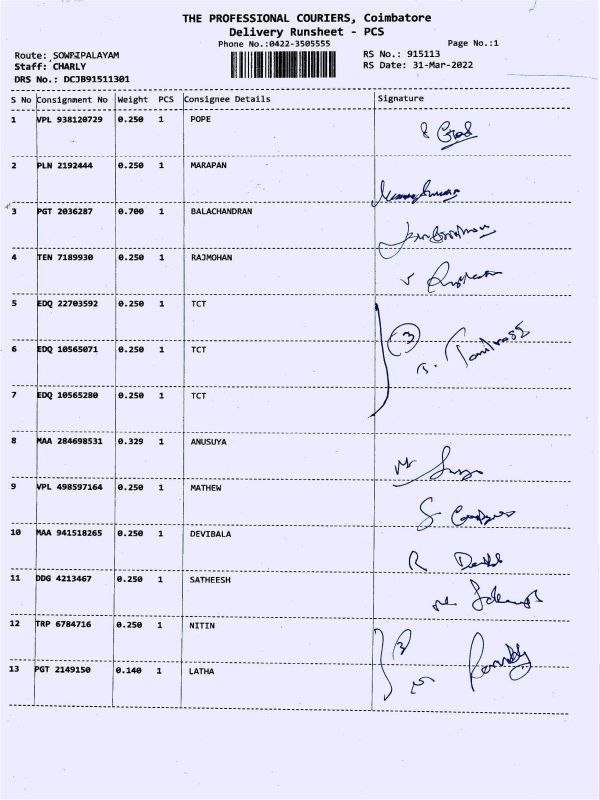 THE PROFESSIONAL COURIERS, Coimbatore
Delivery Runsheet - PCS
Phone No.:0422-3505555 Page No.:1
Route: SOWRIPALAYAM RS No.: 915113
Staff: CHARLY RS Date: 31-Mar-2022
DRS No.: DCJB91511301
S No Consignment No Weight PCS Consignee Details Signature
1 VPL 938120729 0.250 1 POPE
2 PLN 2192444 0.250 1 MARAPAN
3 PGT 2036287 0.700 1 BALACHANDRAN
4 TEN 7189930 0.250 1 RAJMOHAN
5 EDQ 22703592 0.250 1 TCT
3
6 EDQ 10565071 0.250 1 TCT
7 EDQ 10565280 0.250 1 TCT
8 MAA 284698531 0.329 1 ANUSUYA
9 VPL 498597164 0.250 1 MATHEW
10 MAA 941518265 0.250 1 DEVIBALA
11 DDG 4213467 0.250 1 SATHEESH
12 TRP 6784716 0.250 1 NITIN
13 PGT 2149150 0.140 1 LATHA